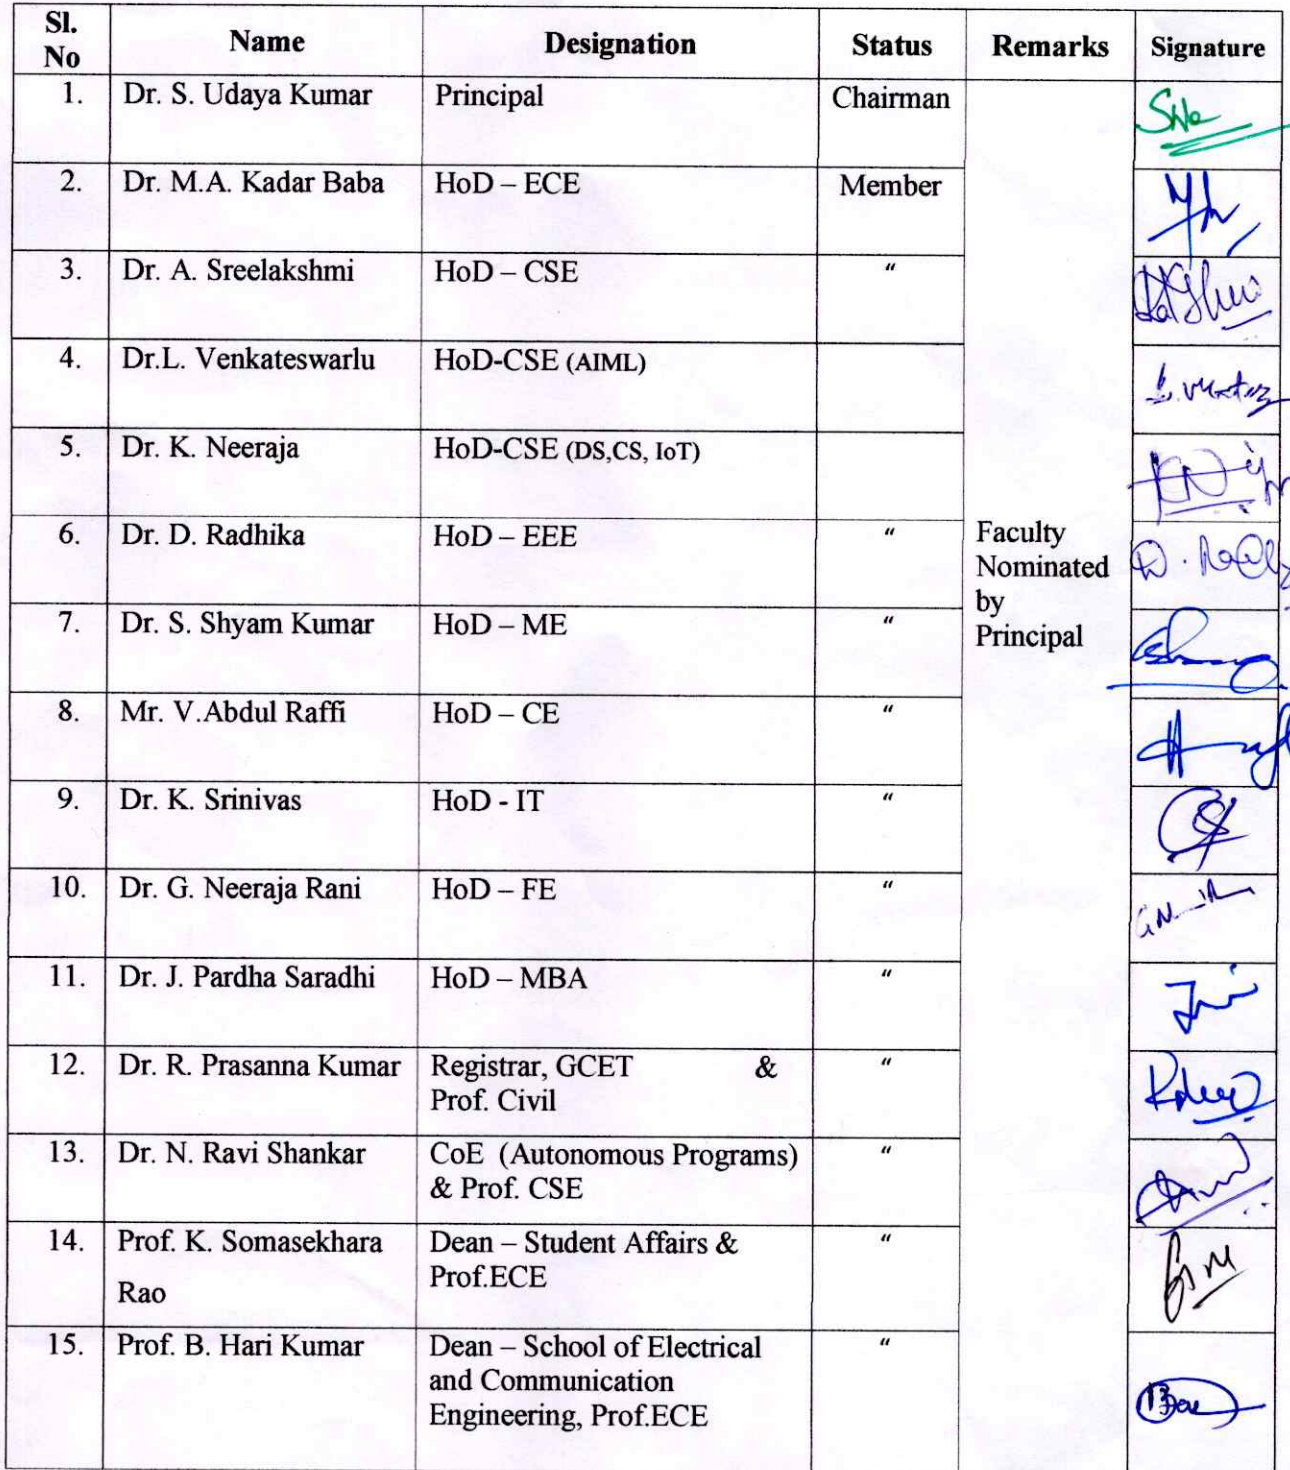 Sl. No Name Designation Status Remarks Signature
1. Dr. S. Udaya Kumar Principal Chairman
2. Dr. M.A. Kadar Baba HoD – ECE Member
3. Dr. A. Sreelakshmi HoD – CSE "
4. Dr.L. Venkateswarlu HoD-CSE (AIML)
5. Dr. K. Neeraja HoD-CSE (DS,CS, IoT)
6. Dr. D. Radhika HoD – EEE "
Faculty
Nominated
by
Principal
7. Dr. S. Shyam Kumar HoD – ME "
8. Mr. V.Abdul Raffi HoD – CE "
9. Dr. K. Srinivas HoD - IT "
10. Dr. G. Neeraja Rani HoD – FE "
11. Dr. J. Pardha Saradhi HoD – MBA "
12. Dr. R. Prasanna Kumar Registrar, GCET & "
Prof. Civil
13. Dr. N. Ravi Shankar CoE (Autonomous Programs) "
& Prof. CSE
14. Prof. K. Somasekhara Dean – Student Affairs & "
Rao Prof.ECE
15. Prof. B. Hari Kumar Dean – School of Electrical "
and Communication
Engineering, Prof.ECE